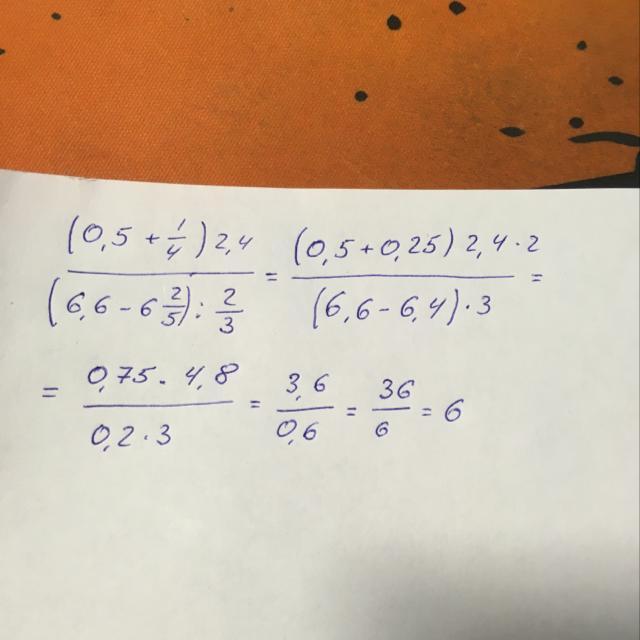 (0,5 + 1/4) 2,4 / (6,6 - 6 2/5) : 2/3 = (0,5 + 0,25) 2,4 · 2 / (6,6 - 6,4) · 3 =
= 0,75 · 4,8 / 0,2 · 3 = 3,6 / 0,6 = 36 / 6 = 6